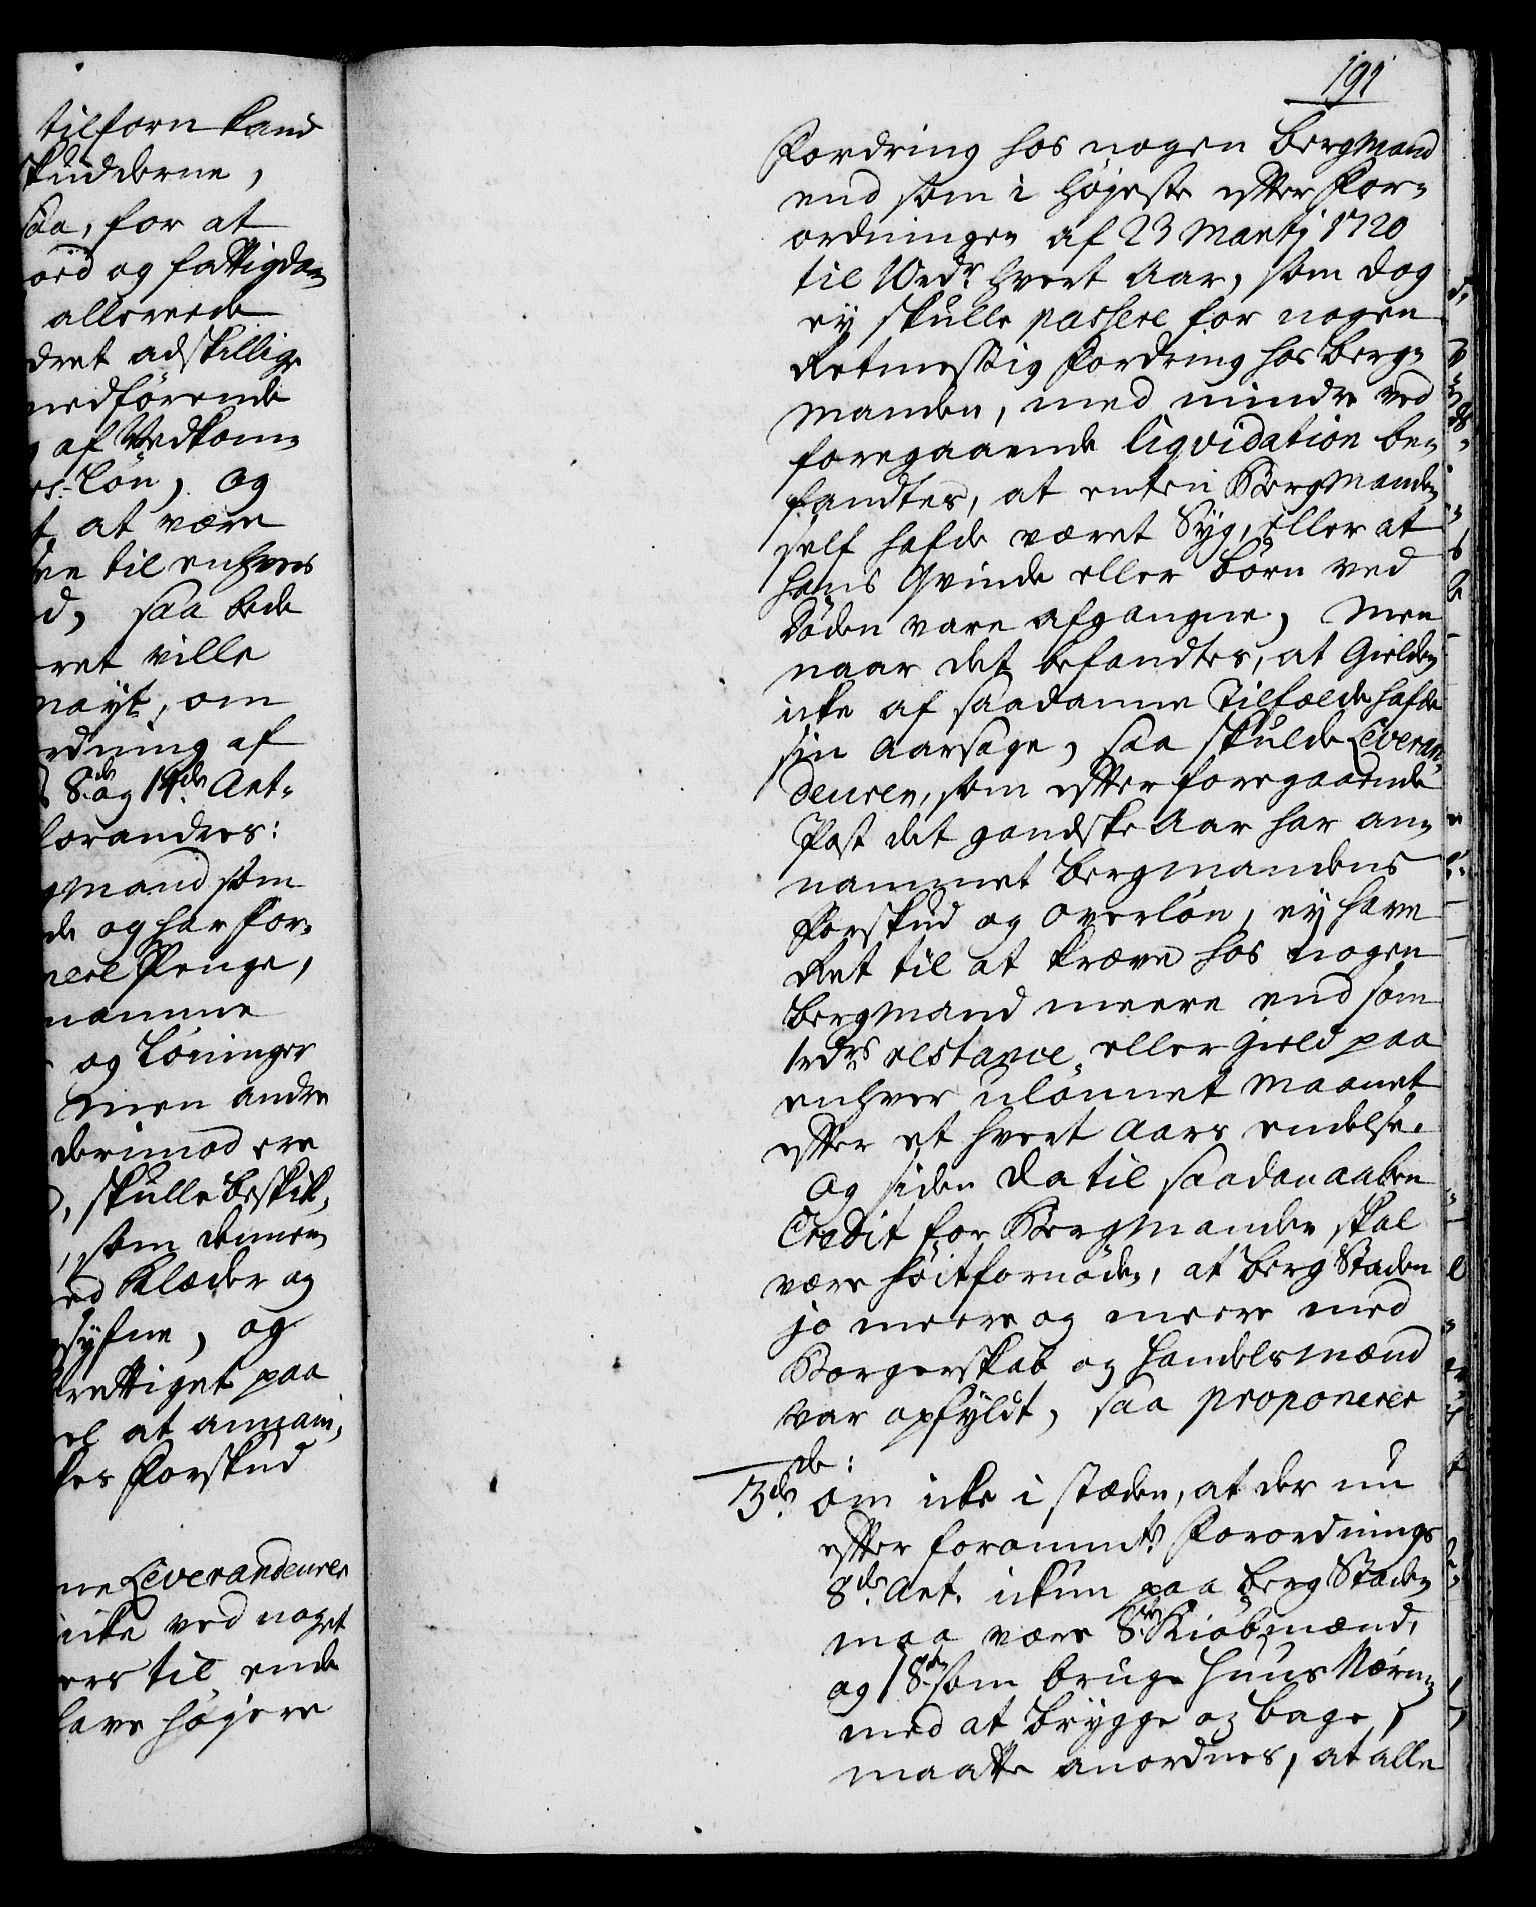 tilforn kand
skudderne,
saa, for at
oed og fattigdom
allereede
dret adskillige
medförende
af Vedkom¬
es-Lön, og
t at være
ee til enhvers
d, saa bede
ret ville
nayt, om
rdning af
8de og 14de Art.
forandres:
gmand som
de og har For¬
neel Penge,
namme
og Löninger
men andre
derimod ere
, skulle beskik,
, som dennem
ed Klæder og
syfne, og
rettiget paa
el at annam,
kes Forskud
ne Leverandeurer
icke ved noget
ers til ende
have höjere
191
Fordring hos nogen Bergmand
end som i Højeste efter For¬
ordningen af 23 Martj 1720
til 10 rdr hvert Aar, som dog
ej skulle passere for nogen
Retmessig Fordring hos Berg¬
manden, med mindre ved
foregaaende liqvidation be¬
fandtes, at enten Bergmanden
self hafde været Syg, eller at
hans Qvinde eller Börn ved
Döden vare afgangne, Men
naar det befandtes, at Gielden
icke af saadanne Tilfælde hafde
sin Aarsage, saa skulde Leveran¬
deuren, som efter foregaaende
Post det gandske Aar har an¬
nammet Bergmandens
Forskud og Overlön, ej have
Ret til at kræve hos nogen
Bergmand meere end som
1 rdrs restance eller Gield paa
enhver ulönnet Maanet
efter et hvert Aars endelse.
Og siden da til saadan aaben
Credit for Bergmanden skal
være höitfornöden, at Berg Staden
jo meere og meere med
Borgerskab og Handelsmænd
var opfyldt, saa proponerer
de:
3de om icke i stæden, at der nu
efter forommelte Forordnings
8de Art. ickun paa Berg Staden
maa være 8te Kiöbmænd,
og 18ten som bruge Huus Næring
med at brygge og bage,
maatte anordnes, at alle